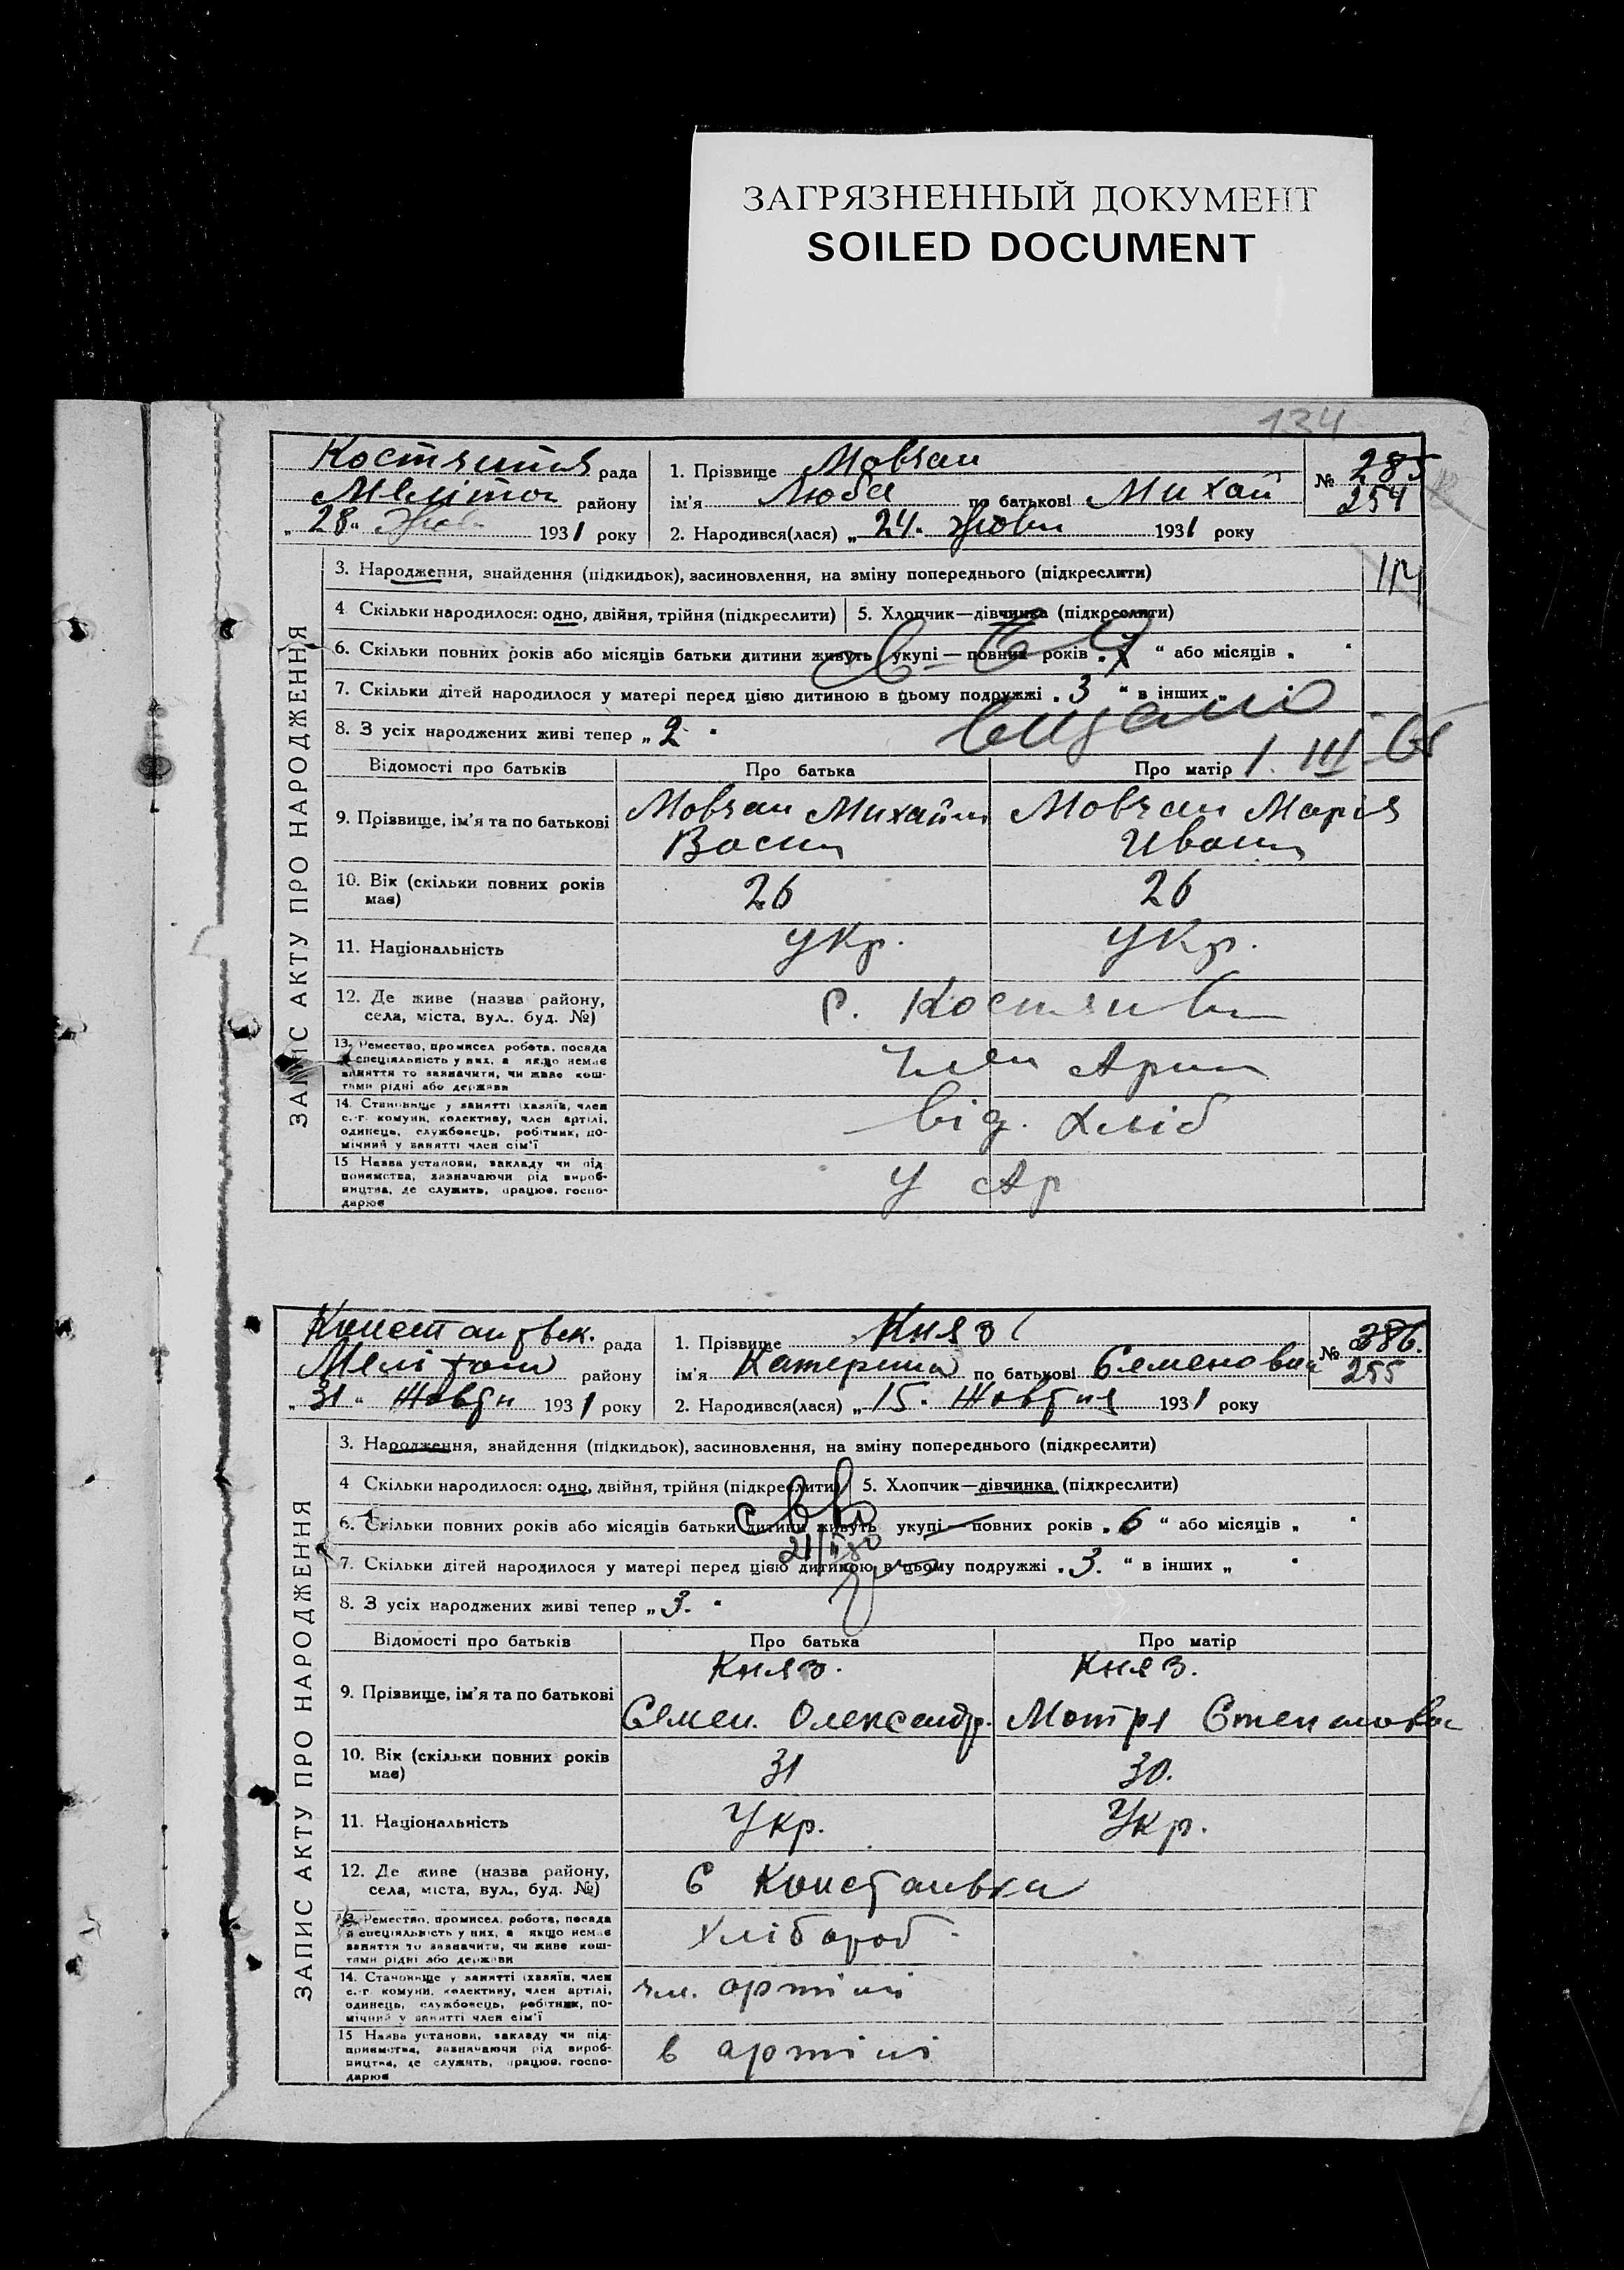 ЗАГРЯЗНЕННЫЙ ДОКУМЕНТ
SOILED DOCUMENT
134
рада
району
„28“ 1931 року
1. Прізвище Мовчан
ім'я Люба по батькові Михай
2. Народився(лася) „24“ Жовтн 1931 року
№ 285
254
ЗАПИС АКТУ ПРО НАРОДЖЕННЯ
3. Народження, знайдення (підкидьок), засиновлення, на зміну попереднього (підкреслити)
4 Скільки народилося: одно, двійня, трійня (підкреслити) 5. Хлопчик—дівчинка (підкреслити)
6. Скільки повних років або місяців батьки дитини живуть укупі — повних років „ “ або місяців „ “
7. Скільки дітей народилося у матері перед цією дитиною в цьому подружжі „3“ в інших „
8. З усіх народжених живі тепер „2“
видано
1. III
Відомості про батьків Про батька Про матір
9. Прізвище, ім'я та по батькові Мовчан Михайло Мовчан Марія
Васил Иван
10. Вік (скільки повних років має) 26 26
11. Національність Укр. Укр.
12. Де живе (назва району,
села, міста, вул. буд. №)
13. Ремество, промисел робота, посада
й спеціяльність у них, а якщо немає
заняття то зазначити, чи живе кош-
тами рідні або держави
14. Становище у занятті (хазяїн, член
с.-г. комуни, колективу, член артілі,
одинець, службовець, робітник, по-
мічний у занятті член сім'ї
від. хліб
15 Назва установи, закладу чи під-
приємства, зазначаючи рід вироб-
ництва, де служить, працює, госпо-
дарює
У Ар
рада
району
„31“ Жовтн 1931 року
1. Прізвище Княз
ім'я Катерина по батькові Семеновна
2. Народився(лася) „15“ Жовтня 1931 року
№ 386.
255
ЗАПИС АКТУ ПРО НАРОДЖЕННЯ
3. Народження, знайдення (підкидьок), засиновлення, на зміну попереднього (підкреслити)
4 Скільки народилося: одно, двійня, трійня (підкреслити) 5. Хлопчик—дівчинка (підкреслити)
6. Скільки повних років або місяців батьки дитини живуть укупі—повних років „6“ або місяців „ “
7. Скільки дітей народилося у матері перед цією дитиною в цьому подружжі „3.“ в інших „ “
8. З усіх народжених живі тепер „3.“
Відомості про батьків Про батька Про матір
Княз. Княз.
9. Прізвище, ім'я та по батькові Семен. Олександр. Мотря Степановна
10. Вік (скільки повних років має) 31 30.
11. Національність Укр. Укр.
12. Де живе (назва району,
села, міста, вул., буд. №)
13. Ремество, промисел, робота, посада
й спеціяльність у них, а якщо немає
заняття то зазначити, чи живе кош-
тами рідні або держави
Хлібороб.
14. Становище у занятті (хазяїн, член
с.-г. комуни, колективу, член артілі,
одинець, службовець, робітник, по-
мічний у занятті член сім'ї
чл. артілі
15 Назва установи, закладу чи під-
приємства, зазначаючи рід вироб-
ництва, де служить, працює, госпо-
дарює
в артілі